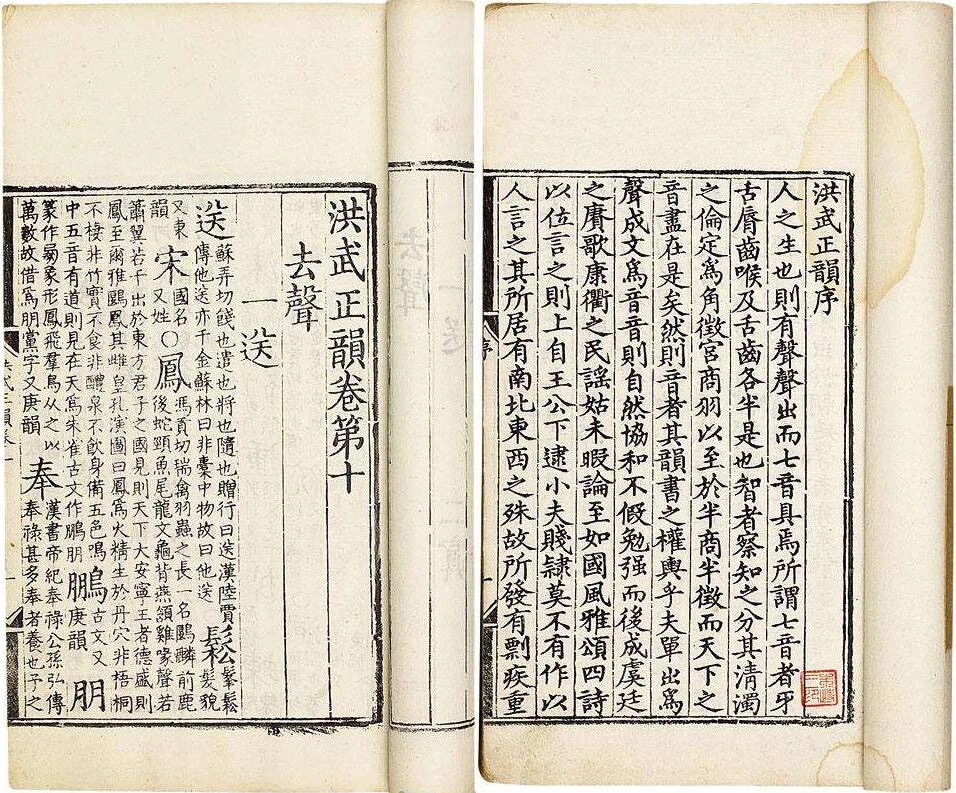 洪武正韻序
人之生也則有聲聲出而七音具焉所謂七音者牙
舌脣齒喉及舌齒各半是也智者察知之分其清濁
之倫定爲角徵宮商羽以至於半商半徵而天下之
音盡在是矣然則音者其韻書之權輿乎夫單出爲
聲成文爲音音則自然協和不假勉强而後成虞廷
之賡歌康衢之民謠姑未暇論至如國風雅頌四詩
以位言之則上自王公下逮小夫賤隸莫不有作以
人言之其所居有南北東西之殊故所發有剽疾重
序
洪武正韻卷第十
去聲
一送
送蘇弄切餞也遣也將也隨也贈行曰送漢陸賈傳他送亦千金蘇林曰非囊中物故曰他送鬆髼鬆髮貌
又東韻宋國名又姓○鳳馮貢切瑞禽羽蟲之長一名鶠麟前鹿後蛇頸魚尾龍文龜背燕頷雞喙聲若
簫翼若干出於東方君子之國見則天下大安寧王者德盛則鳳至爾雅鶠鳳其雌皇孔演圖曰鳳爲火精生於丹穴非梧桐
不棲非竹實不食非醴泉不飲身備五色鳴中五音有道則見在天爲朱雀古文作鵬朋鵬古文又庚韻朋
篆作象形鳳飛羣鳥從之以萬數故借爲朋黨字又庚韻奉漢書帝紀奉祿公孫弘傳奉祿甚多奉者養也子之